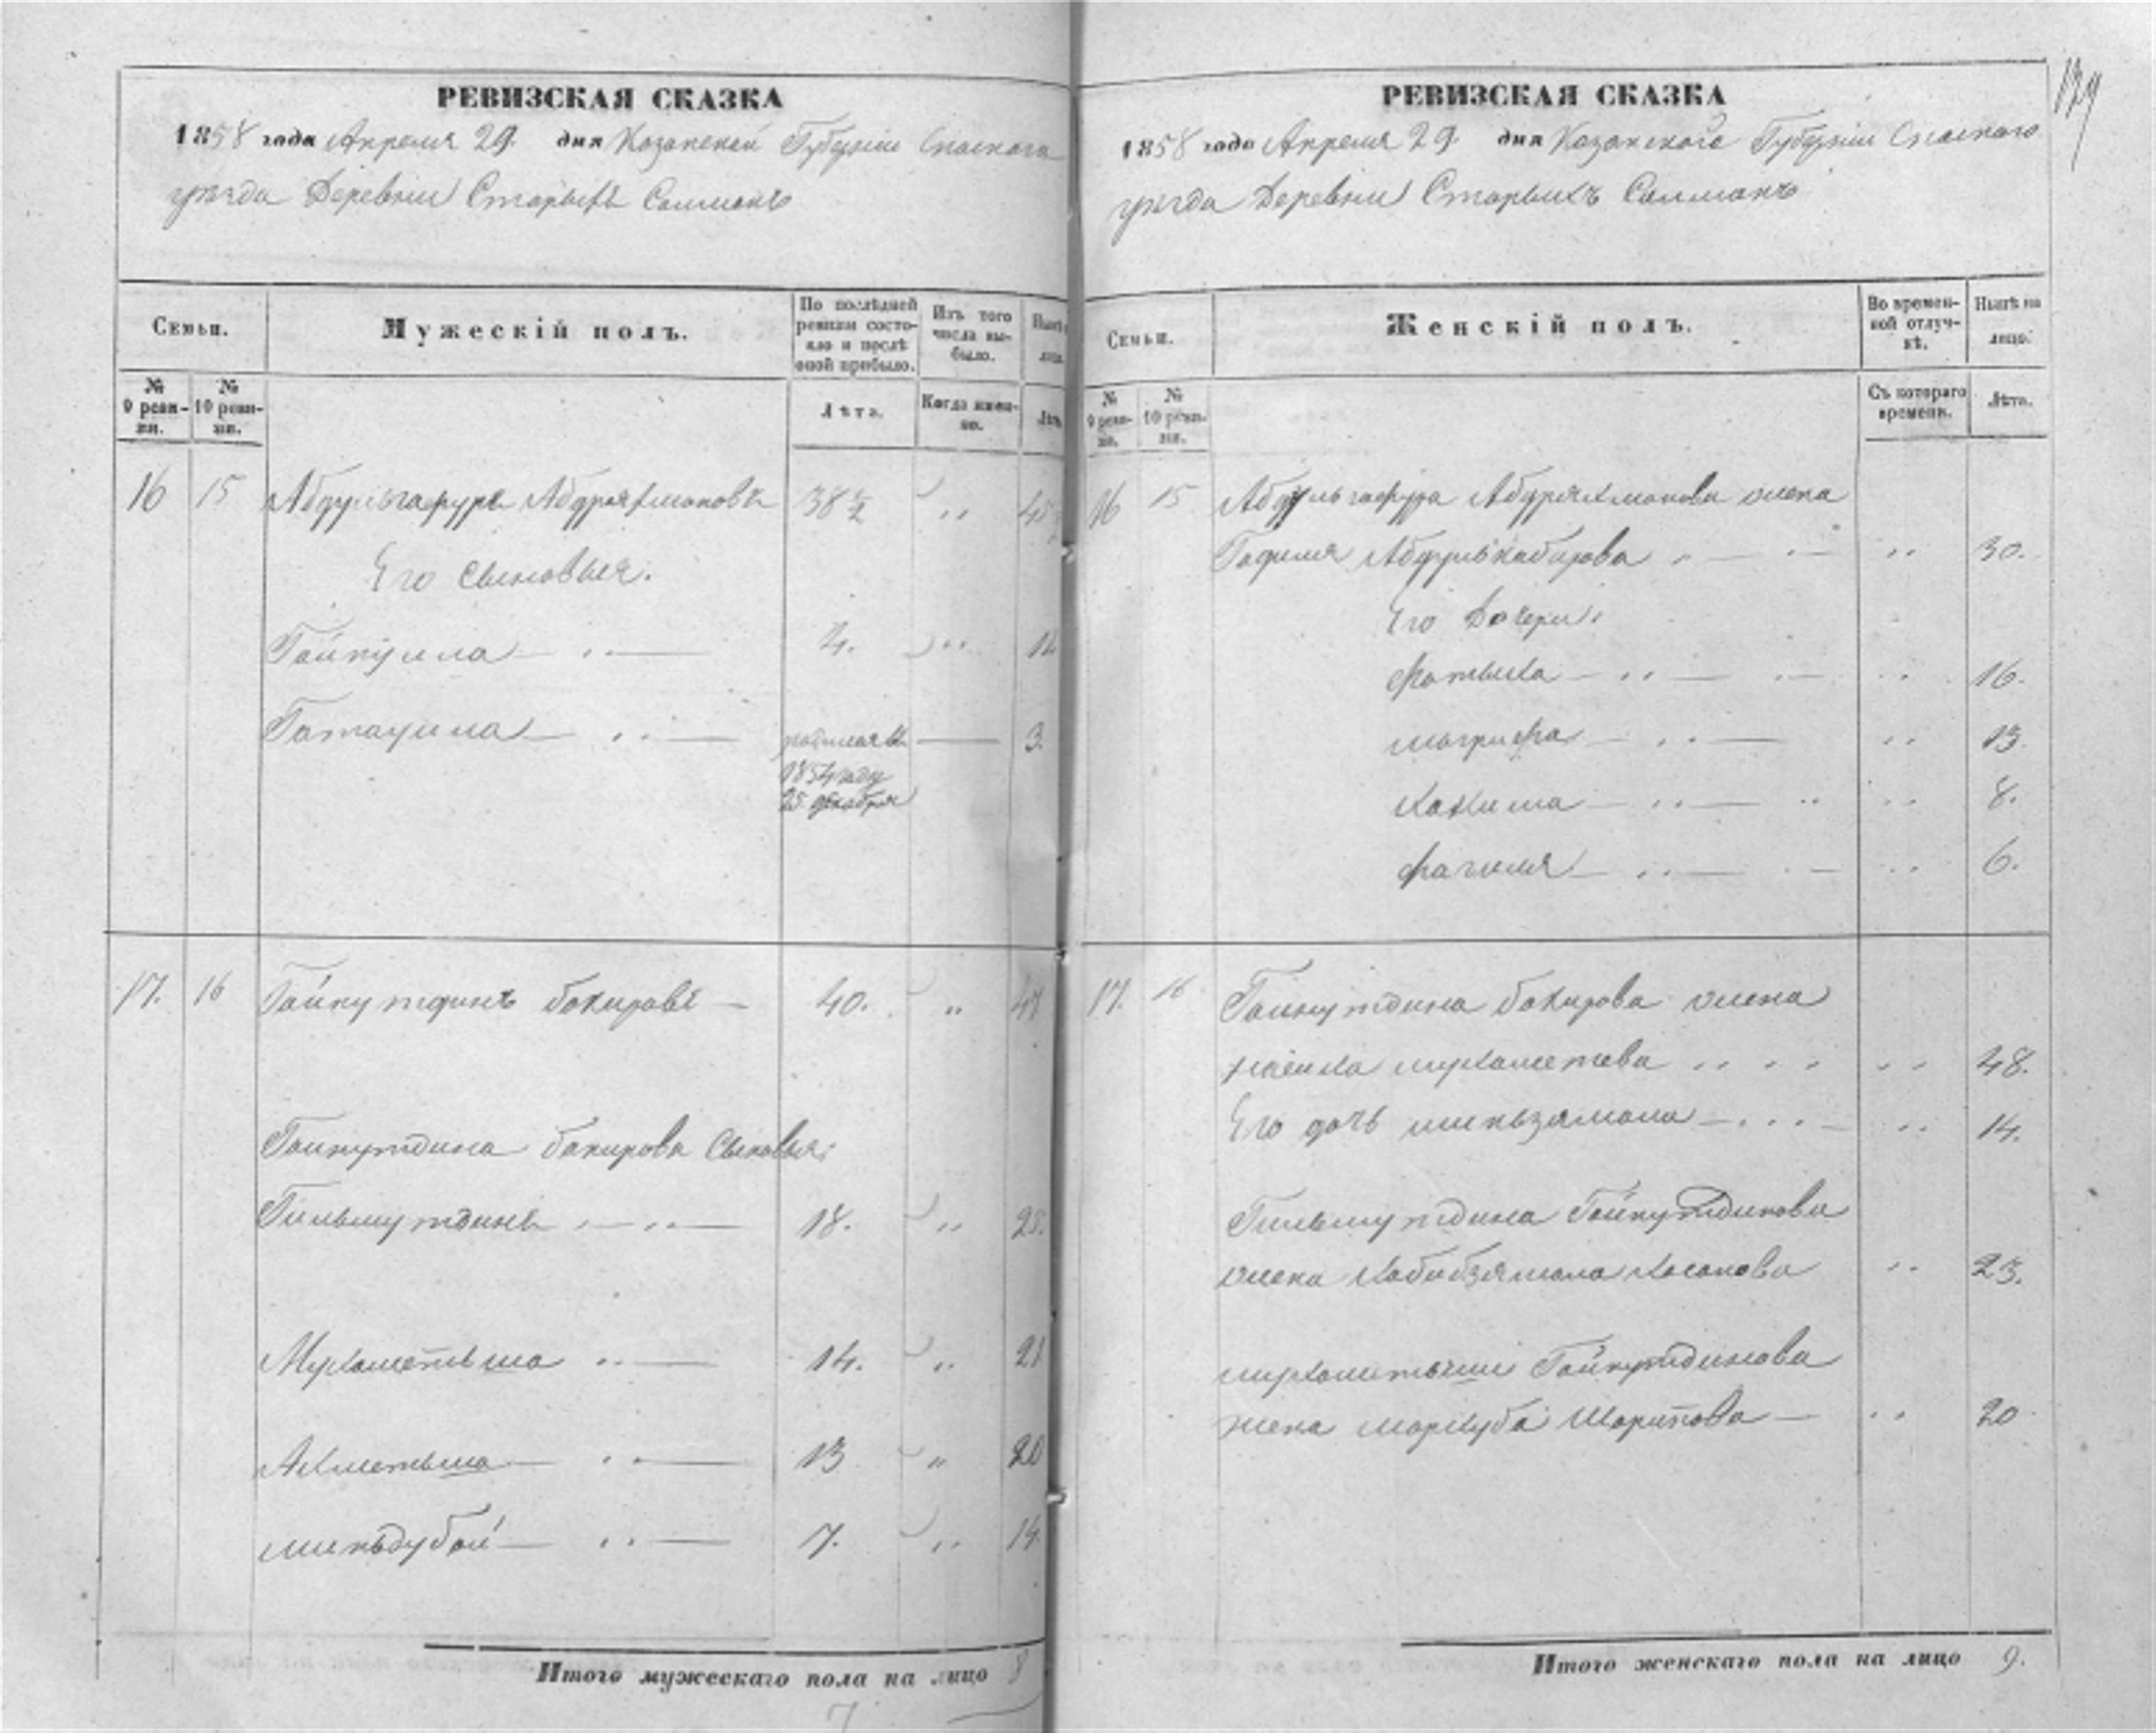 РЕВИЗСКАЯ СКАЗКА
1858 года Апреля 29 дня Казанской Губернии Спаскаго
уѣзда Деревни Старыхъ Салманъ
Семьи.
Мужескій полъ.
По послѣдней ревизіи состояло и послѣ оной прибыло.
Изъ того числа выбыло.
№ 9 ревизіи.
№ 10 ревизіи.
Лѣта.
Когда именно.
16 15 Абдульгафуръ Абдряхмановъ 38 ½ " 45
Его сыновья.
Гайнулла 4. "
Гатаулла родился въ 3.
1854 году
25 декабря
17. 16 Гайнутдинъ Бакировъ 40. " 47
Гайнутдина Бакирова Сыновья:
Гильмутдинъ 18. " 25.
Мухаметьша 14. " 21
Ахметьша 13 " 20
миньдубай 7. " 14.
Итого мужескаго пола на лицо 8
РЕВИЗСКАЯ СКАЗКА
139
1858 года Апреля 29 дня Казанского Губернии Спаского
уѣзда Деревни Старыхъ Салманъ
Семьи.
Женскій полъ.
Во временной отлучкѣ.
Нынѣ на лицо.
№ 9 ревизіи.
№ 10 ревизіи.
Съ котораго времени.
Лѣта.
16 15 Абдульгафура Абдряхманова жена
Абдулькабирова " 30.
Его дочери:
фатыха " 16.
" 13
хакима " 8.
" 6.
17. 16 Гайнутдина Бакирова жена
мухаметева " 48.
Его дочь миньзямала " 14.
Гильмутдина Гайнутдинова
жена хабибзямала хасанова " 23.
мухаметьши Гайнутдинова
жена мархуба Шарипова " 20
Итого женскаго пола на лицо 9.